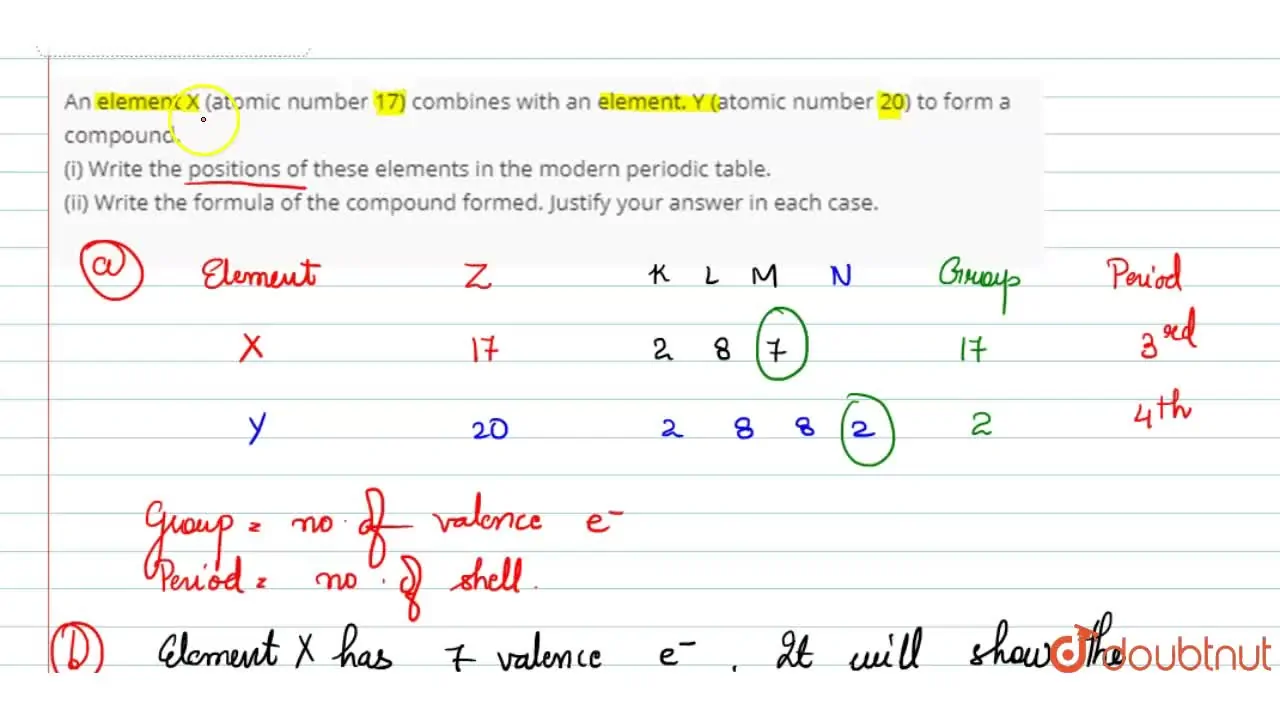 An element X (atomic number 17) combines with an element. Y (atomic number 20) to form a
compound.
(i) Write the positions of these elements in the modern periodic table.
(ii) Write the formula of the compound formed. Justify your answer in each case.
a Element Z K L M N Group Period
X 17 2 8 7 17 3rd
Y 20 2 8 8 2 2 4th
Group = no. of valence e⁻
Period = no. of shell.
b) Element X has 7 valence e⁻. It will show the
doubtnut